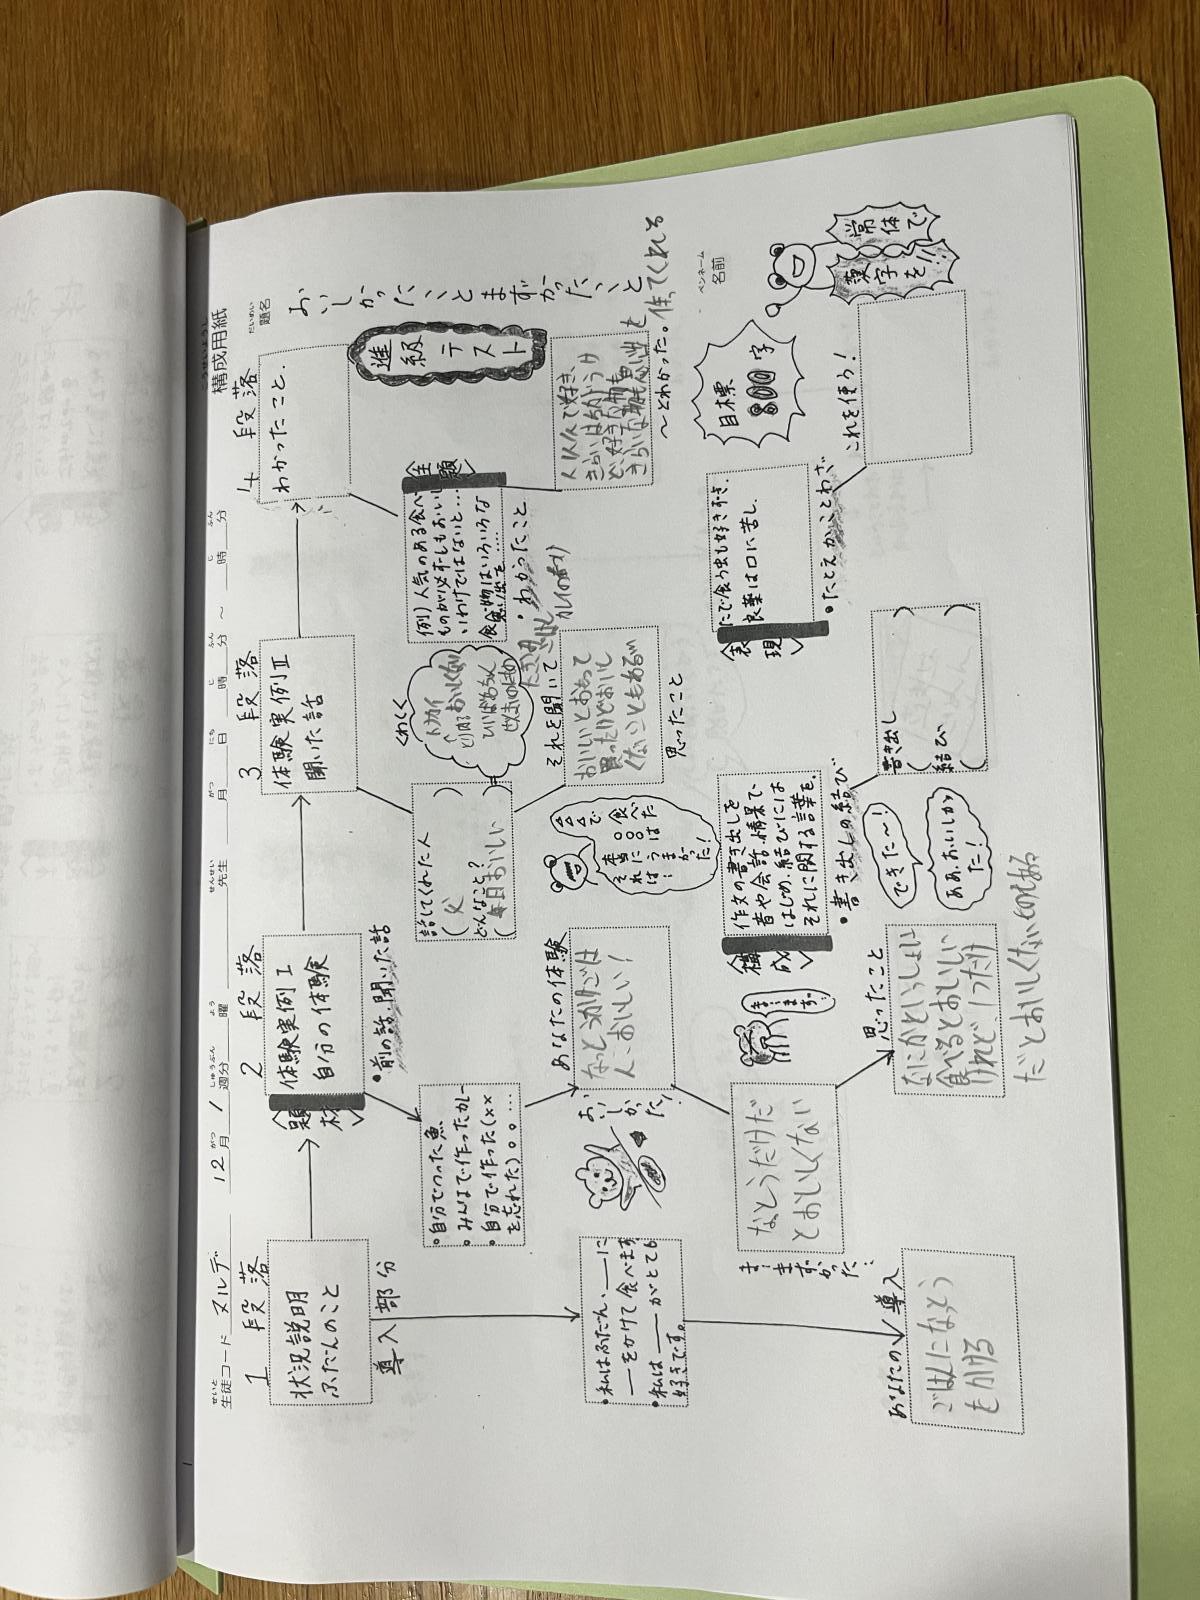 構成用紙
題名
おいしかったこととまずかったこと
ペンネーム
名前
生徒コード ヌルデ
12月1週分
曜
先生
月 日 時 分 ~ 時 分
1段落
状況説明
ふだんのこと
導入部分
・私はふだん、__に
__をかけて食べます
・私は__がとても
好きです。
あなたの導入
ごはんになっとう
もかける
2段落
<題材>
体験実例Ⅰ
自分の体験
・前の話、聞いた話
・自分でつった魚
・みんなで作ったカレー
・自分で作った(××
を忘れた)。。…
おいしかった!
あなたの体験
なっとうかけごは
ん、おいしい!
なとうだけだ
とおいしくない
ま…まずかった…
ま…まず…
思ったこと
なにかといっしょに
食べるとおいしい
けれど、1つだけ
だとおいしくない
3段落
体験実例Ⅱ
聞いた話
話してくれた人
(父)
どんなこと?
くわしく
それを聞いて
おいしいとおもって
買ったけどおいし
くないこともある
思ったこと
△△△で
○○○食べた
それは
本当に
うまかった!
<構成>
作文の書き出しを
音や会話、情景で
はじめ、結びには
それに関する言葉を。
・書き出しの結び
書き出し
( )
結び
( )
できた~!
ああ、おいしかっ
た!
4段落
わかったこと、
進級テスト
<主題>
例)人気のある食べ
ものが必ずしもおいし
いわけではないと…
食べ物はいろいろな
思い出を……
・わかったこと
人によって好き、
きらいはちがうけ
ど、好きな物も
きらいな物も思い出を
作ってくれる
~とわかった。
<表現>
たで食う虫も好き好き、
良薬は口に苦し、
・たとえかことわざ
これを使う!
目標
800字
常体で
漢字を!!